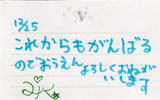 12/25
これからもがんばる
のでおうえんよろしくおねがい
します